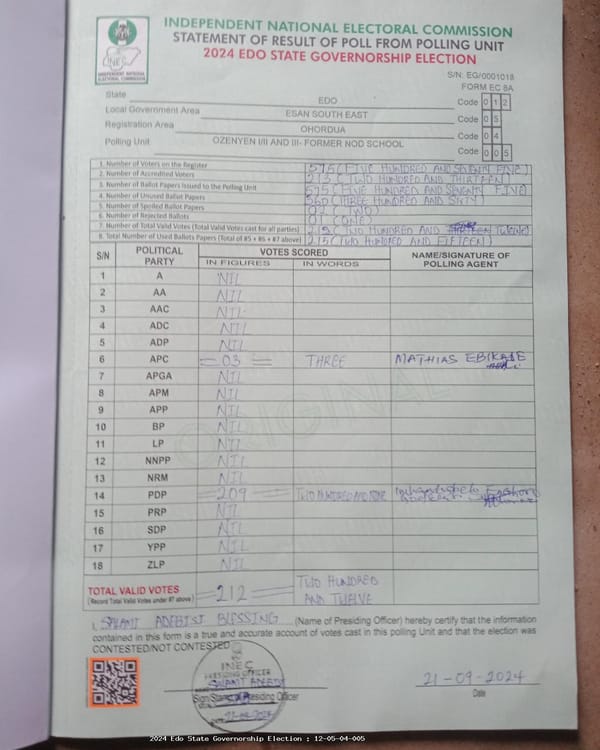 INDEPENDENT NATIONAL ELECTORAL COMMISSION
STATEMENT OF RESULT OF POLL FROM POLLING UNIT
2024 EDO STATE GOVERNORSHIP ELECTION
INEC
INDEPENDENT NATIONAL ELECTORAL COMMISSION
S/N: EG/0001018
FORM EC 8A
State EDO Code 0 1 2
Local Government Area ESAN SOUTH EAST Code 0 5
Registration Area OHORDUA Code 0 4
Polling Unit OZENYEN I/II AND III- FORMER NOD SCHOOL Code 0 0 5
1. Number of Voters on the Register 575 (FIVE HUNDRED AND SEVENTY FIVE)
2. Number of Accredited Voters 213 (TWO HUNDRED AND THIRTEEN)
3. Number of Ballot Papers Issued to the Polling Unit 575 (FIVE HUNDRED AND SEVENTY FIVE)
4. Number of Unused Ballot Papers 360 (THREE HUNDRED AND SIXTY)
5. Number of Spoiled Ballot Papers 02 (TWO)
6. Number of Rejected Ballots 01 (ONE)
7. Number of Total Valid Votes (Total Valid Votes cast for all parties) 212 (TWO HUNDRED AND TWELVE)
8. Total Number of Used Ballots Papers (Total of #5 + #6 + #7 above) 215 (TWO HUNDRED AND FIFTEEN)
S/N POLITICAL PARTY VOTES SCORED NAME/SIGNATURE OF POLLING AGENT
IN FIGURES IN WORDS
1 A NIL
2 AA NIL
3 AAC NIL
4 ADC NIL
5 ADP NIL
6 APC 03 THREE MATHIAS EBIKADE
7 APGA NIL
8 APM NIL
9 APP NIL
10 BP NIL
11 LP NIL
12 NNPP NIL
13 NRM NIL
14 PDP 209 TWO HUNDRED AND NINE
15 PRP NIL
16 SDP NIL
17 YPP NIL
18 ZLP NIL
ORIGINAL
TOTAL VALID VOTES 212 TWO HUNDRED AND TWELVE
(Record Total Valid Votes under #7 above)
I, SALAMI ADEBISI BLESSING (Name of Presiding Officer) hereby certify that the information
contained in this form is a true and accurate account of votes cast in this polling Unit and that the election was
CONTESTED/NOT CONTESTED
INEC
PRESIDING OFFICER
Sign/Stamp of Presiding Officer
21-09-2024
Date
2024 Edo State Governorship Election : 12-05-04-005